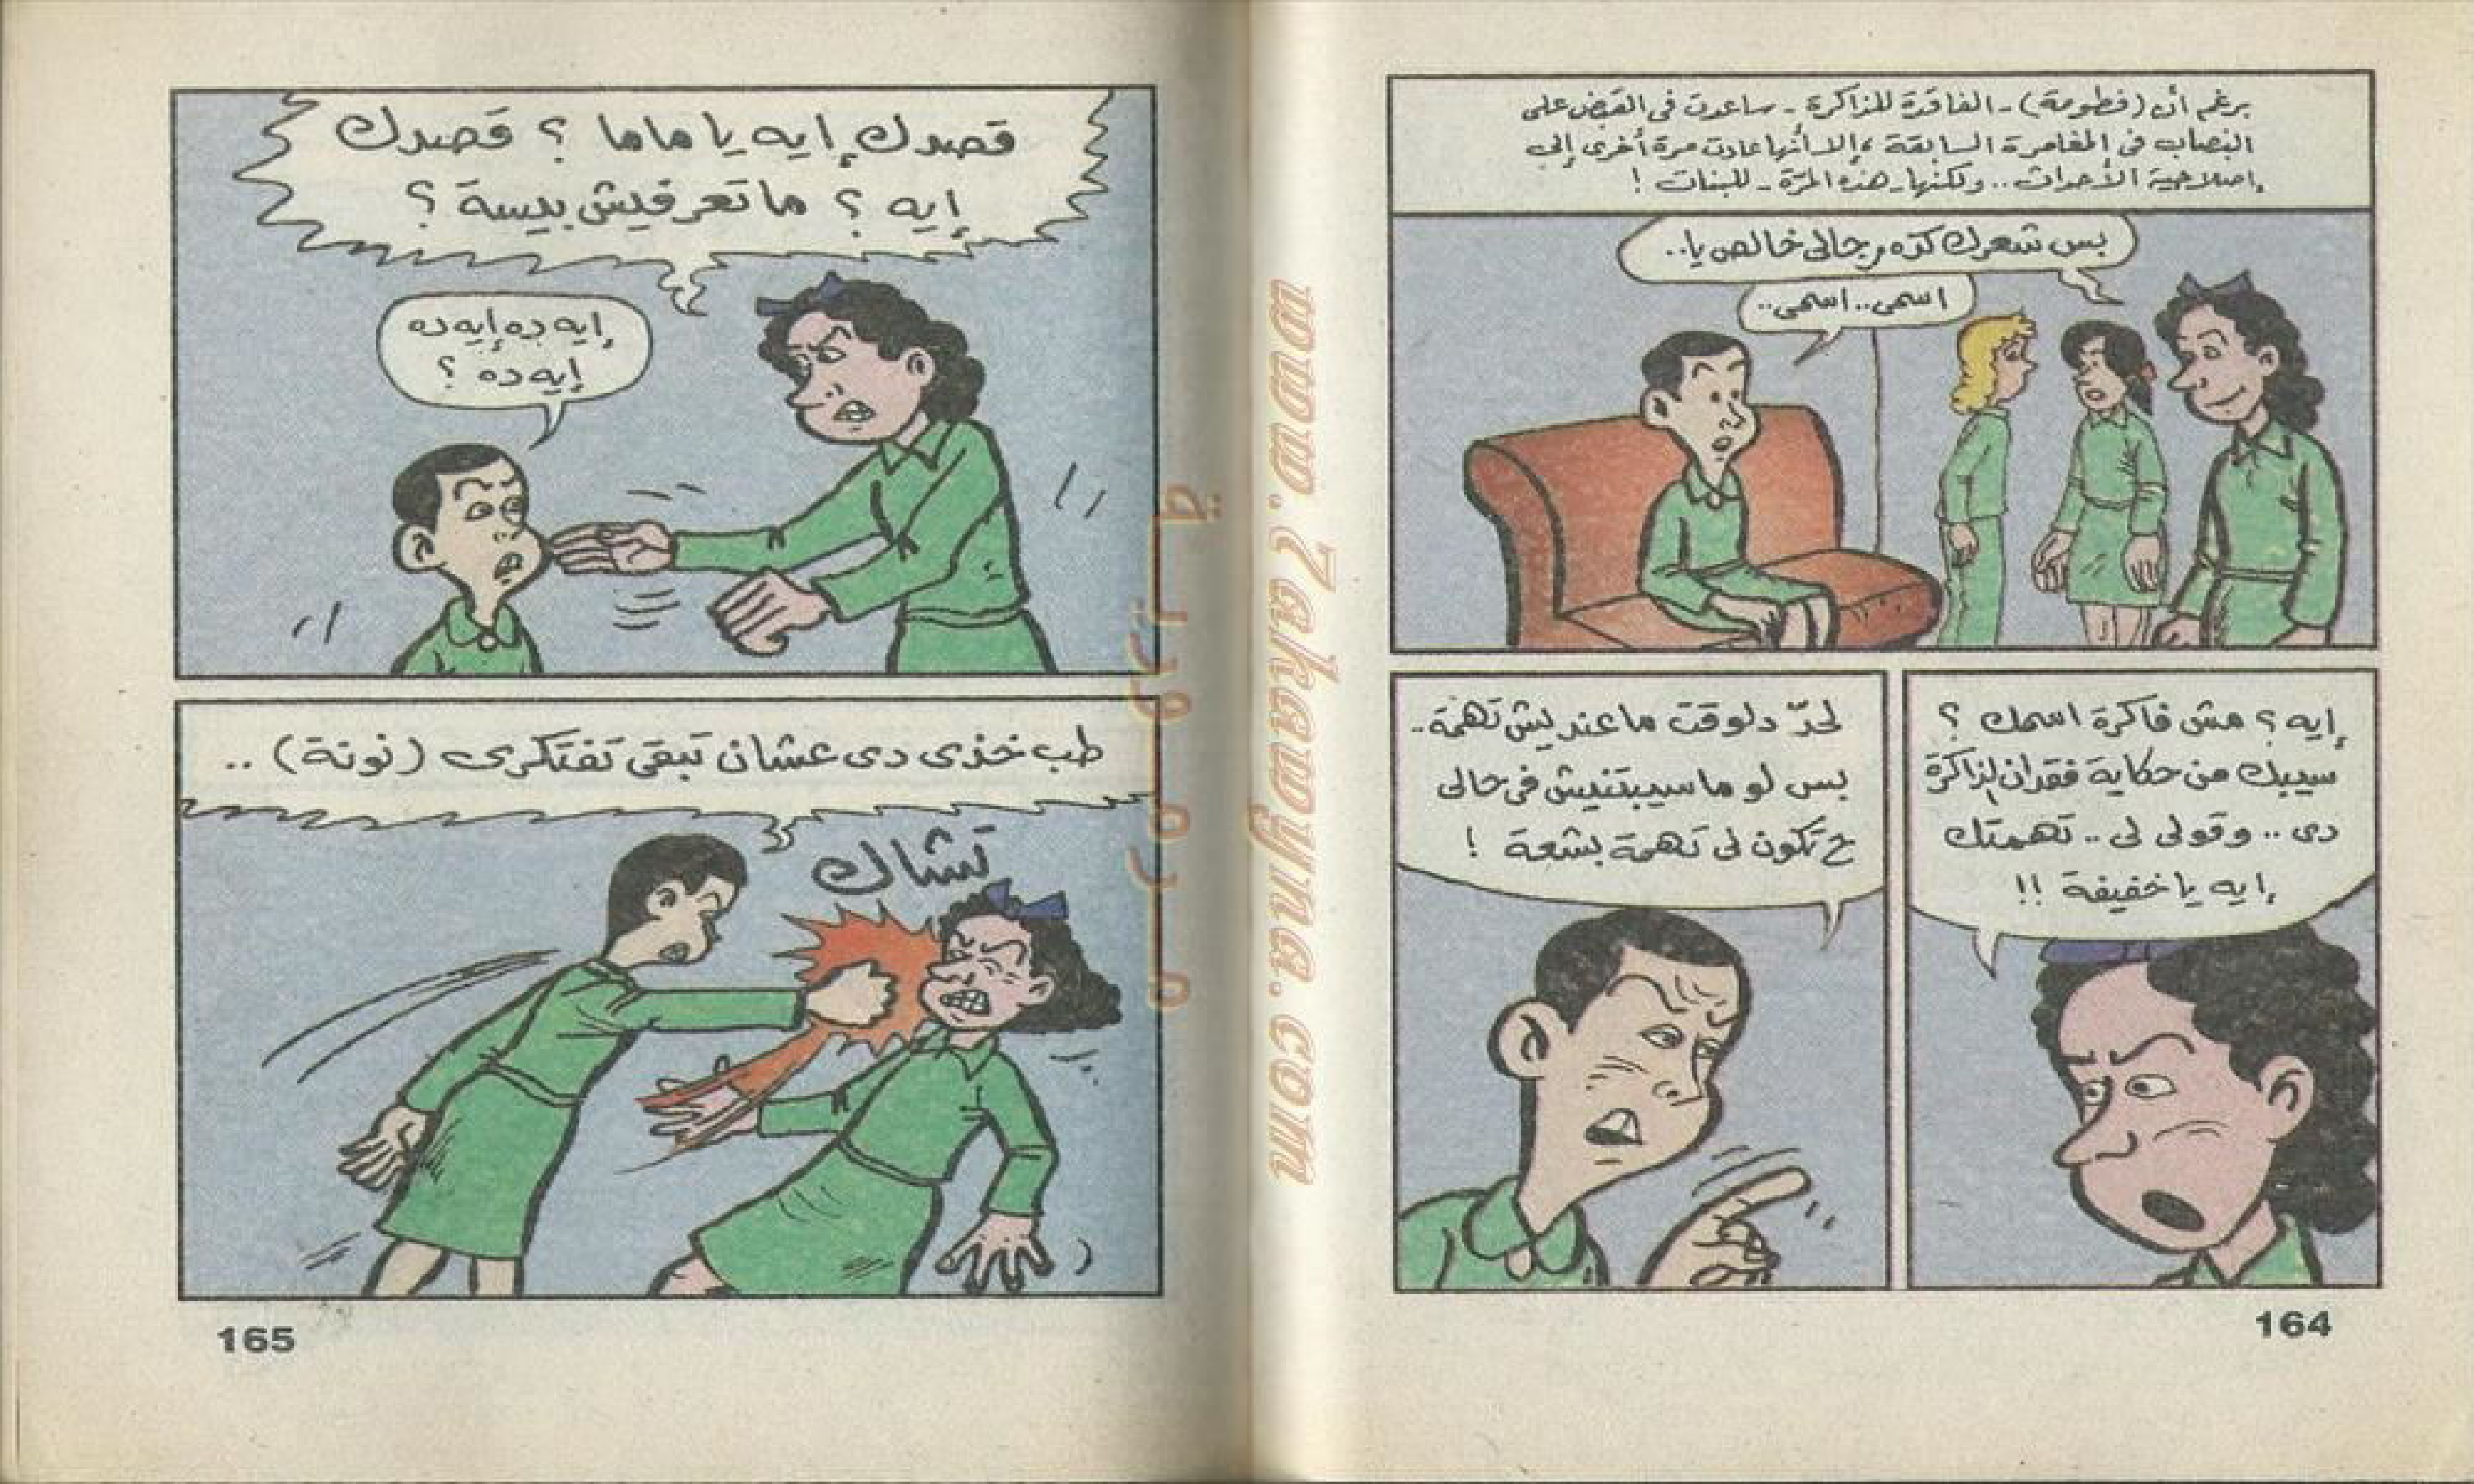 برغم أن (فطومة) - الفاقدة للذاكرة - ساعدت فى القبض على
النصاب فى المغامرة السابقة ، إلا أنها عادت مرة أخرى إلى
إصلاحية الأحداث .. ولكنها - هذه المرّة - للبنات !
بس شعرك كده رجالى خالص يا ..
اسمى .. اسمى ..
إيه ؟ مش فاكرة اسمك ؟
سيبك من حكاية فقدان الذاكرة
دى .. وقولى لى .. تهمتك
إيه يا خفيفة !!
لحدّ دلوقت ما عنديش تهمة ..
بس لو ما سيبتنيش فى حالى
ح تكون لى تهمة بشعة !
164
قصدك إيه يا ماما ؟ قصدك
إيه ؟ ما تعرفيش بيسة ؟
إيه ده إيه ده
إيه ده ؟
طب خذى دى عشان تبقى تفتكرى (نونة) ..
تشاك
165
www.7akawyna.com